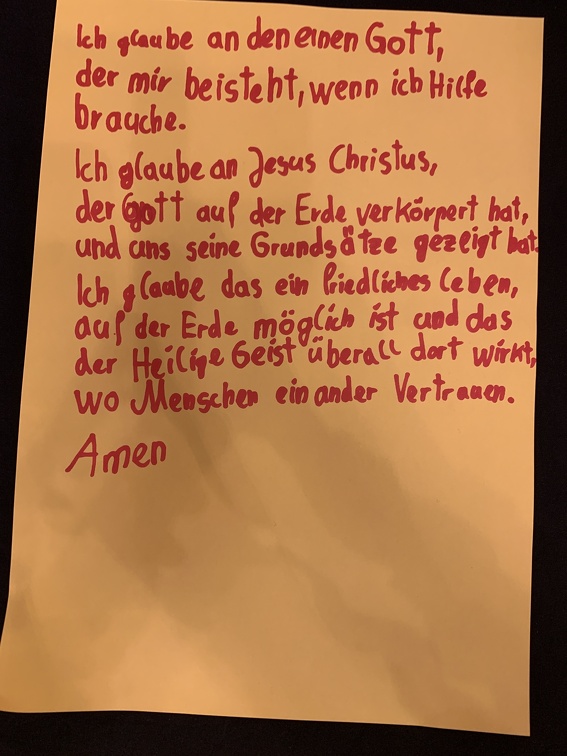 Ich glaube an den einen Gott,
der mir beisteht, wenn ich Hilfe
brauche.
Ich glaube an Jesus Christus,
der Gott auf der Erde verkörpert hat,
und uns seine Grundsätze gezeigt hat.
Ich glaube das ein friedliches Leben,
auf der Erde möglich ist und das
der Heilige Geist überall dort wirkt,
wo Menschen einander Vertrauen.
Amen